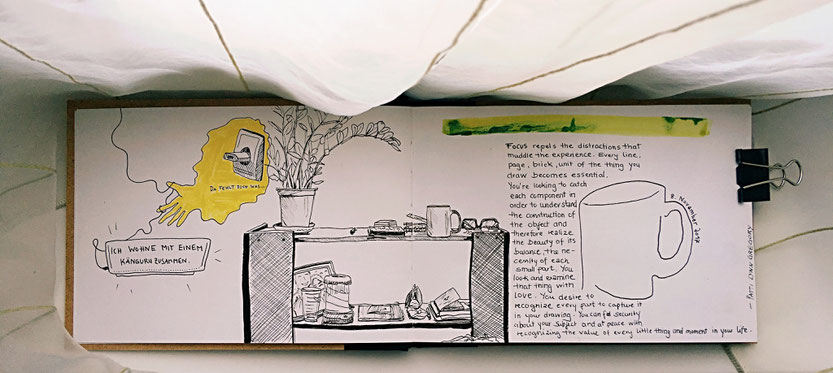 DA FEHLT DOCH WAS...
ICH WOHNE MIT EINEM
KÄNGURU ZUSAMMEN.
Focus repels the distractions that
muddle the experience. Every line,
page, brick, unit of the thing you
draw becomes essential.
You're looking to catch
each component in
order to understand
the construction of
the object and
therefore realize
the beauty of its
balance, the ne-
cessity of each
small part. You
look and examine
that thing with
love. You desire to
recognize every part to capture it
in your drawing. You can feel security
about your subject and at peace with
recognizing the value of every little thing and moment in your life.
8. November 2017
— PATTI LYNN GREGORY